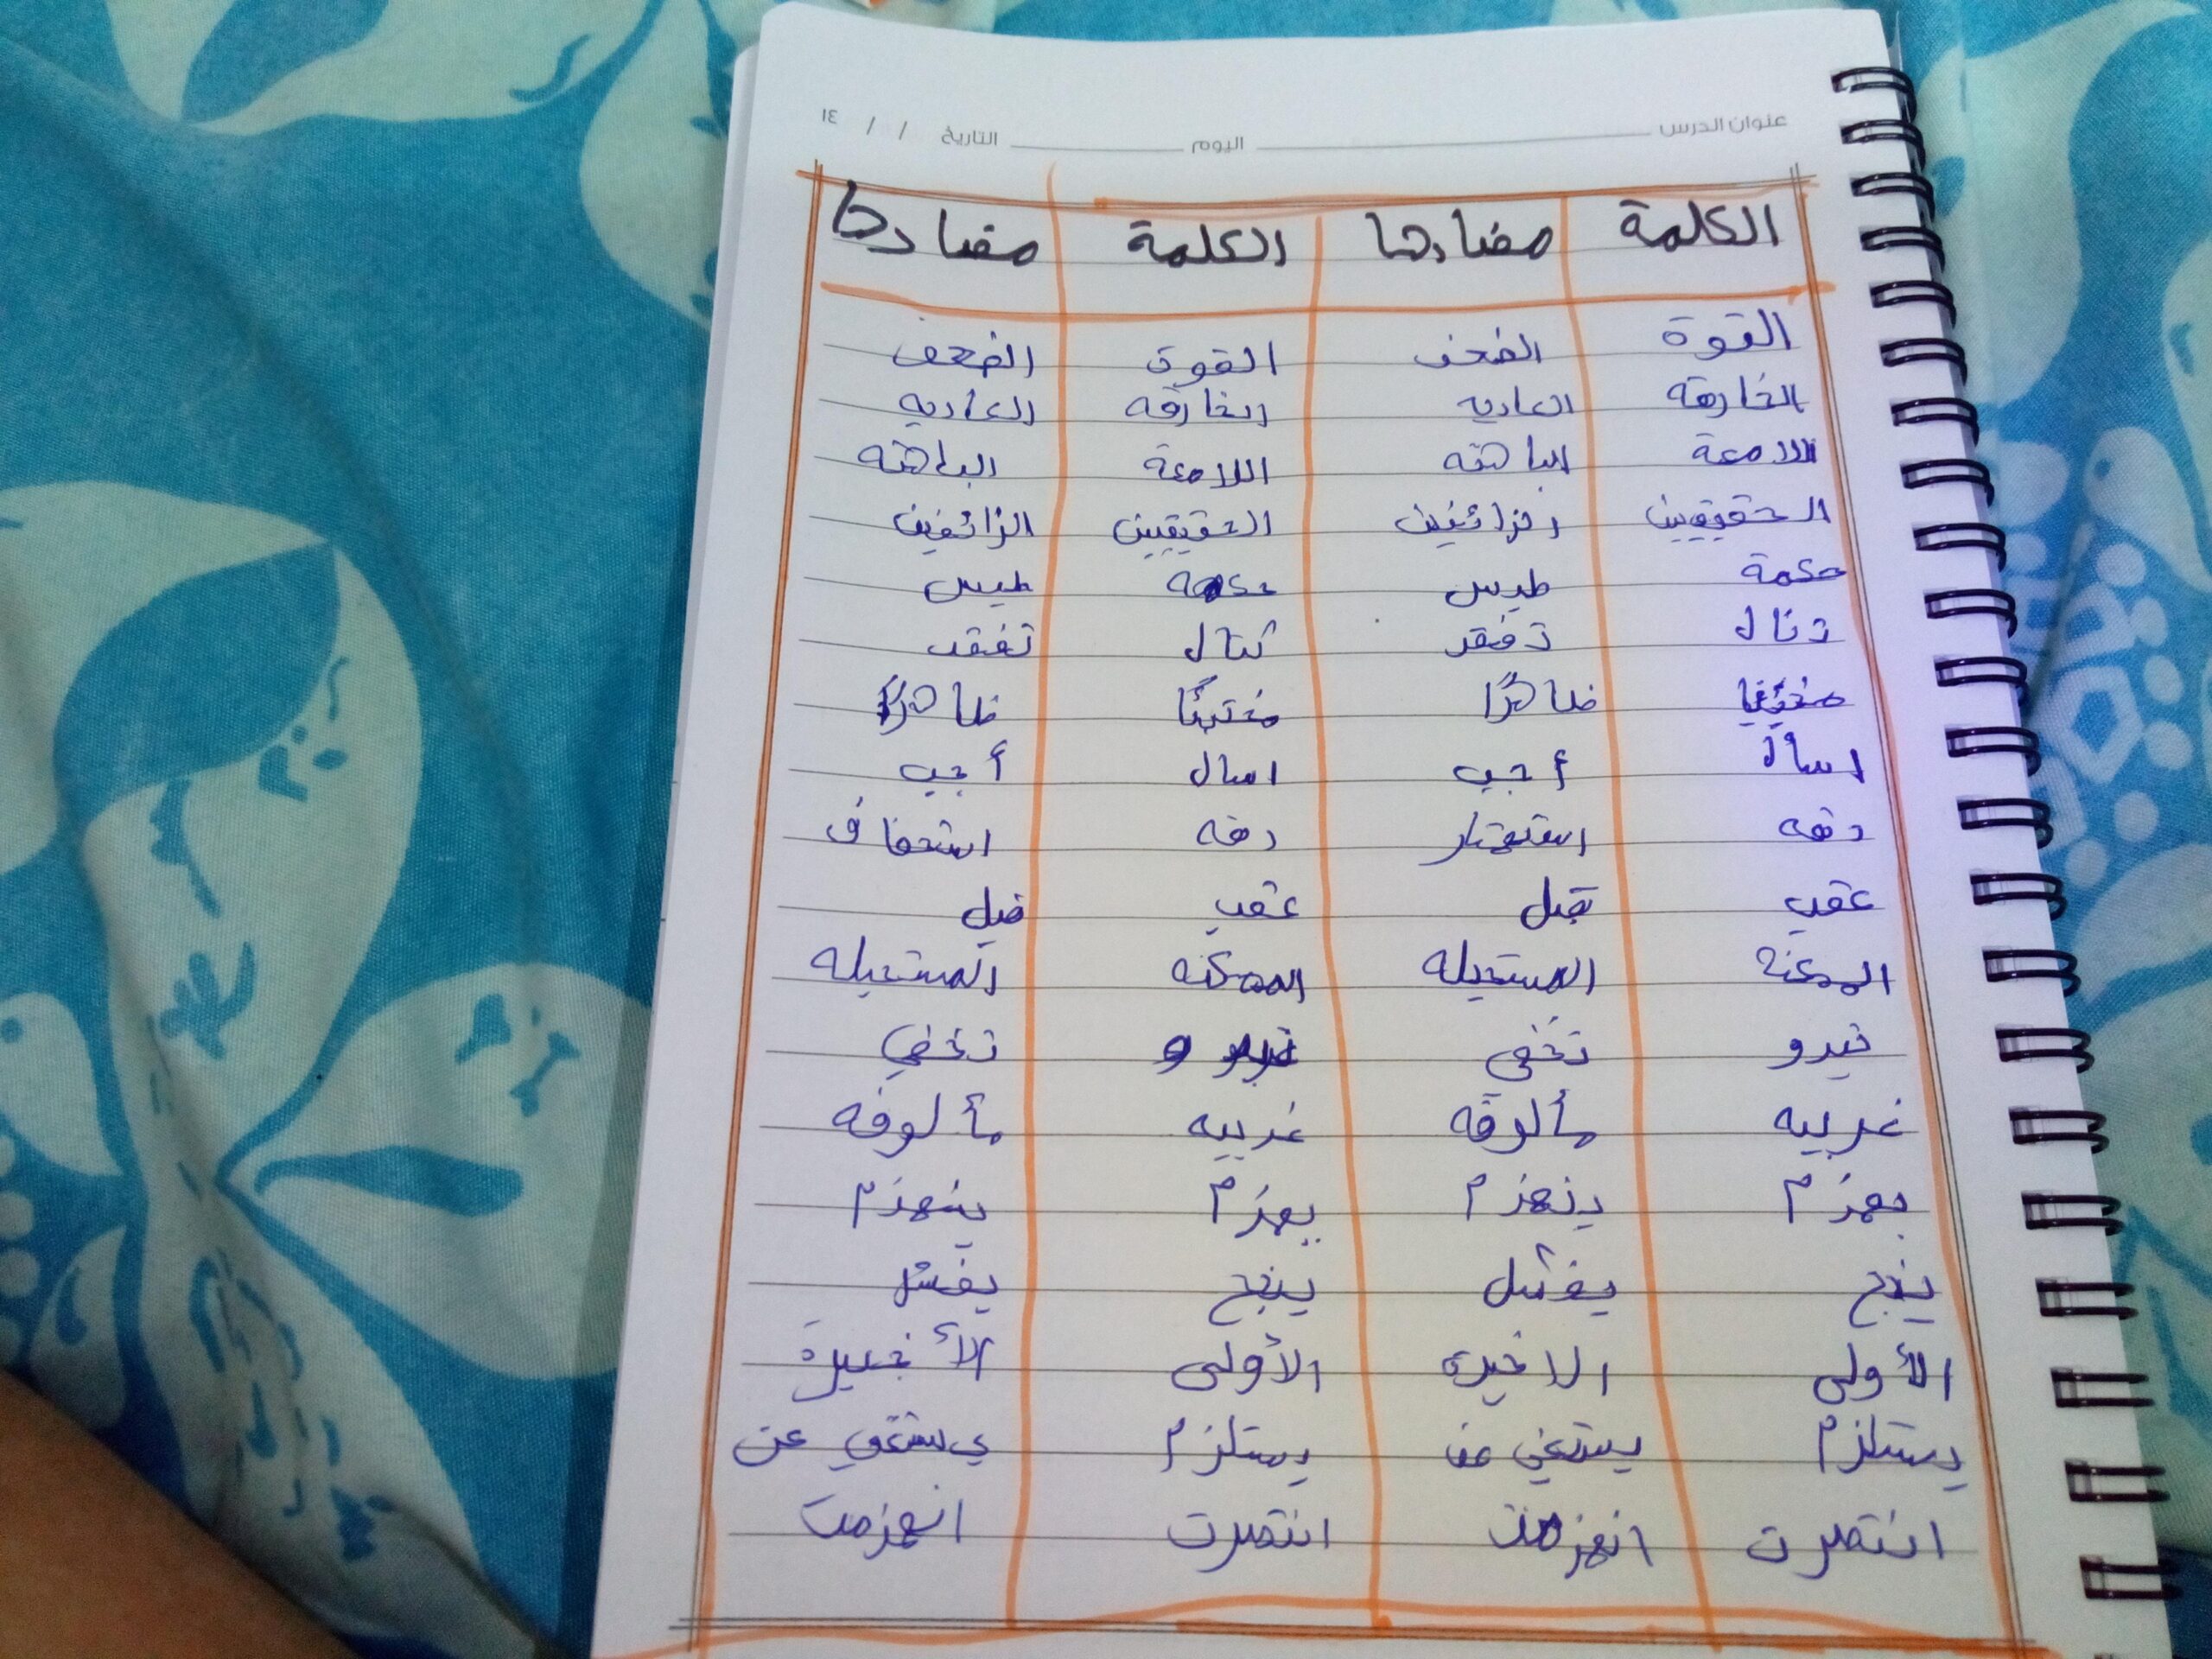 عنوان الدرس اليوم التاريخ / / ١٤
الكلمة مضادها الكلمة مضادها
القوة الضعف القوة الضعف
الخارقه العاديه الخارقه العاديه
اللامعة الباهته اللامعة الباهته
الحقيقيين الزائفين الحقيقيين الزائفين
حكمة طيس حكمه طيس
تنال تفقد تنال تفقد
ظاهرًا مختبئًا ظاهرًا
اسأل أجب اسال أجب
دقه دقه استخفاف
عقب قبل عقب قبل
الممكنه المستحيله الممكنه المستحيله
تبدو تخفي تبدو تخفي
غريبه مألوفه غريبه مألوفه
يهزم ينهزم يهزم ينهزم
ينجح يفشل ينجح يفشل
الأولى الاخيرة الأولى الأخيرة
يستلزم يستغني عن يستلزم يستغني عن
انتصرت انهزمت انتصرت انهزمت